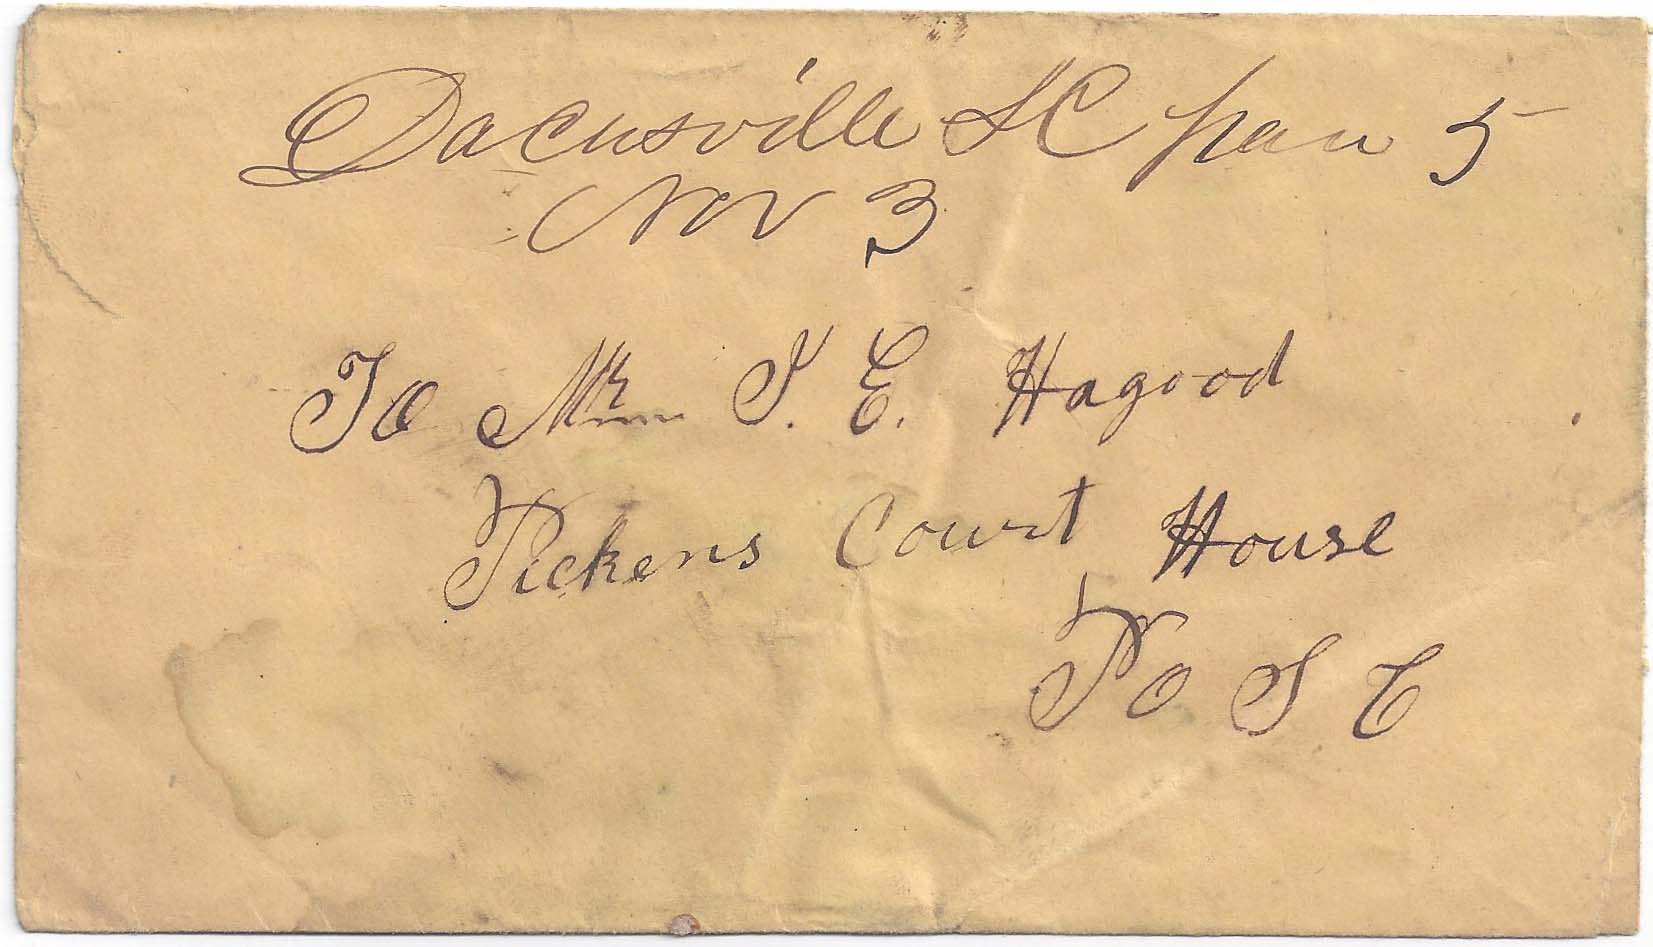 Dacusville SC 5
Nov 3
To Mr J. E. Hagood
Pickens Court House
Po S C